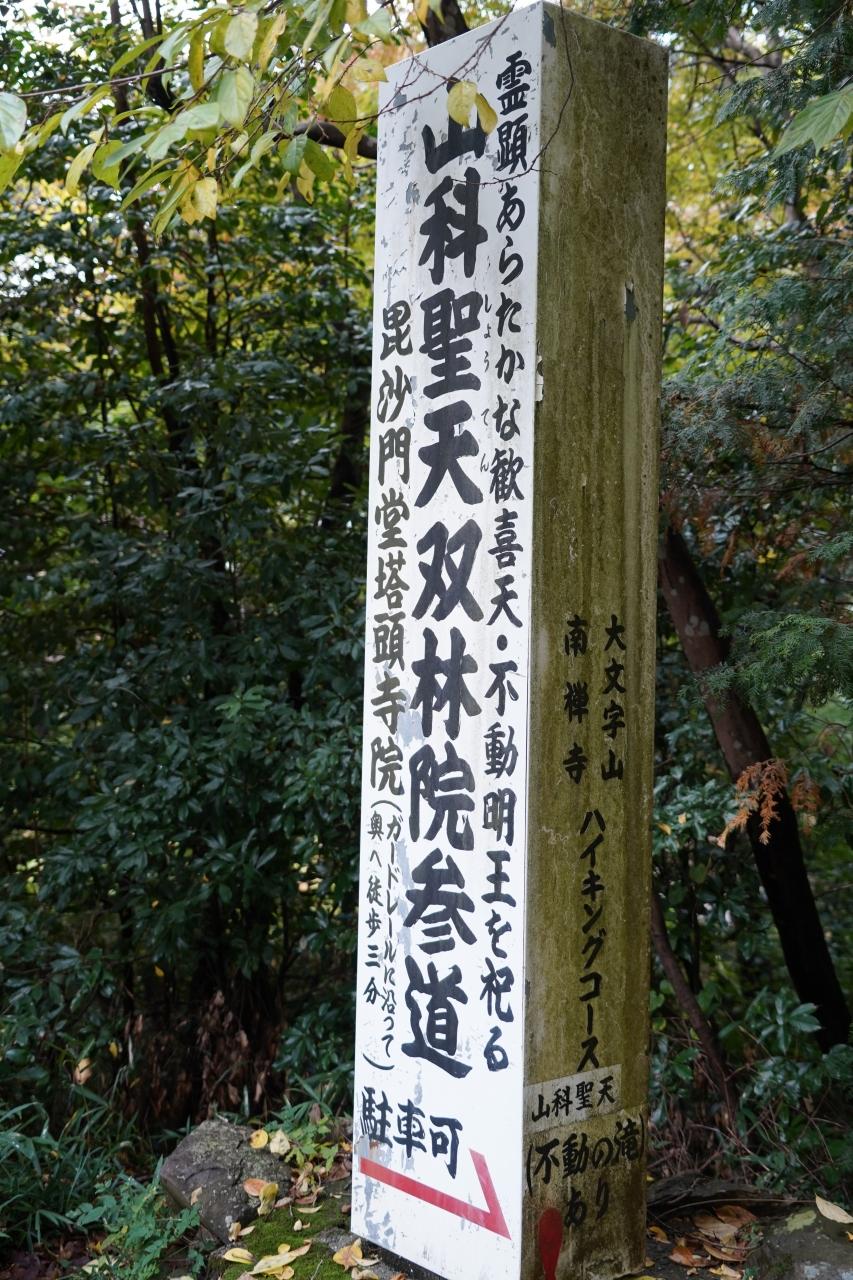 霊顕あらたかな歓喜天・不動明王を祀る
しょうてん
山科聖天双林院参道
毘沙門堂塔頭寺院
(ガードレールに沿って
奥へ徒歩三分)
駐車可
大文字山
南禅寺
ハイキングコース
山科聖天
(不動の滝)
あり